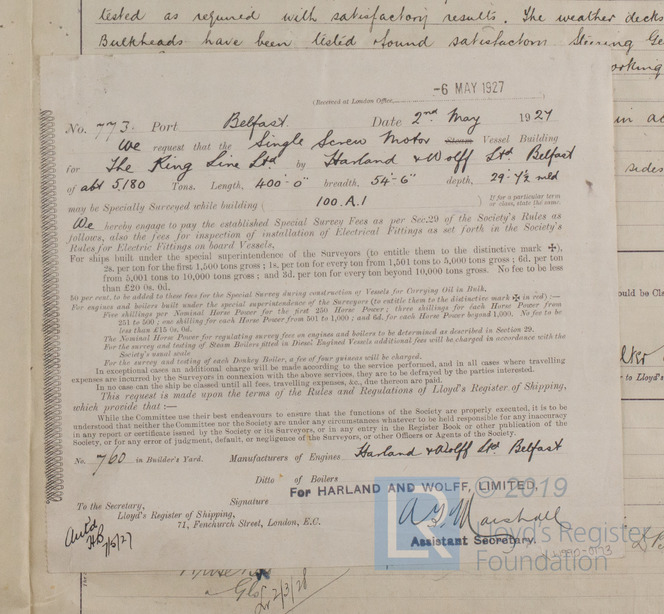 tested as required with satisfactory results. The weather decks
Bulkheads have been tested & found satisfactory Steering Ge
orking
-6 MAY 1927
(Received at London Office,
No. 773. Port Belfast Date 2nd May 1927
We request that the Single Screw Motor Steam Vessel Building
for The King Line Ltd by Harland & Wolff Ltd Belfast
of abt 5180 Tons. Length, 400'-0" breadth, 54'-6" depth, 29'-7½ mld
may be Specially Surveyed while building ( 100.A.1 ) If for a particular term or class, state the same.
We hereby engage to pay the established Special Survey Fees as per Sec.29 of the Society's Rules as
follows, also the fees for inspection of installation of Electrical Fittings as set forth in the Society's
Rules for Electric Fittings on board Vessels,
For ships built under the special superintendence of the Surveyors (to entitle them to the distinctive mark ✠),
2s. per ton for the first 1,500 tons gross; 1s. per ton for every ton from 1,501 tons to 5,000 tons gross; 6d. per ton
from 5,001 tons to 10,000 tons gross; and 3d. per ton for every ton beyond 10,000 tons gross. No fee to be less
than £20 0s. 0d.
50 per cent. to be added to these fees for the Special Survey during construction of Vessels for Carrying Oil in Bulk.
For engines and boilers built under the special superintendence of the Surveyors (to entitle them to the distinctive mark ✠ in red) :—
Five shillings per Nominal Horse Power for the first 250 Horse Power; three shillings for each Horse Power from
251 to 500; one shilling for each Horse Power from 501 to 1,000; and 6d. for each Horse Power beyond 1,000. No fee to be
less than £15 0s. 0d.
The Nominal Horse Power for regulating survey fees on engines and boilers to be determined as described in Section 29.
For the survey and testing of Steam Boilers fitted in Diesel Engined Vessels additional fees will be charged in accordance with the
Society's usual scale
For the survey and testing of each Donkey Boiler, a fee of four guineas will be charged.
In exceptional cases an additional charge will be made according to the service performed, and in all cases where travelling
expenses are incurred by the Surveyors in connexion with the above services, they are to be defrayed by the parties interested.
In no case can the ship be classed until all fees, travelling expenses, &c., due thereon are paid.
This request is made upon the terms of the Rules and Regulations of Lloyd's Register of Shipping,
which provide that :—
While the Committee use their best endeavours to ensure that the functions of the Society are properly executed, it is to be
understood that neither the Committee nor the Society are under any circumstances whatever to be held responsible for any inaccuracy
in any report or certificate issued by the Society or its Surveyors, or in any entry in the Register Book or other publication of the
Society, or for any error of judgment, default, or negligence of the Surveyors, or other Officers or Agents of the Society.
No. 760 in Builder's Yard. Manufacturers of Engines Harland & Wolff Ltd Belfast
Ditto of Boilers
For HARLAND AND WOLFF, LIMITED,
To the Secretary, Signature
Lloyd's Register of Shipping, A G Marshall
71, Fenchurch Street, London, E.C.
Assistant Secretary.
7/5/27
2/3/28
in ac
sides
ould be Cla
to Lloyd's Regist
LR
© 2019
Lloyd's Register
Foundation